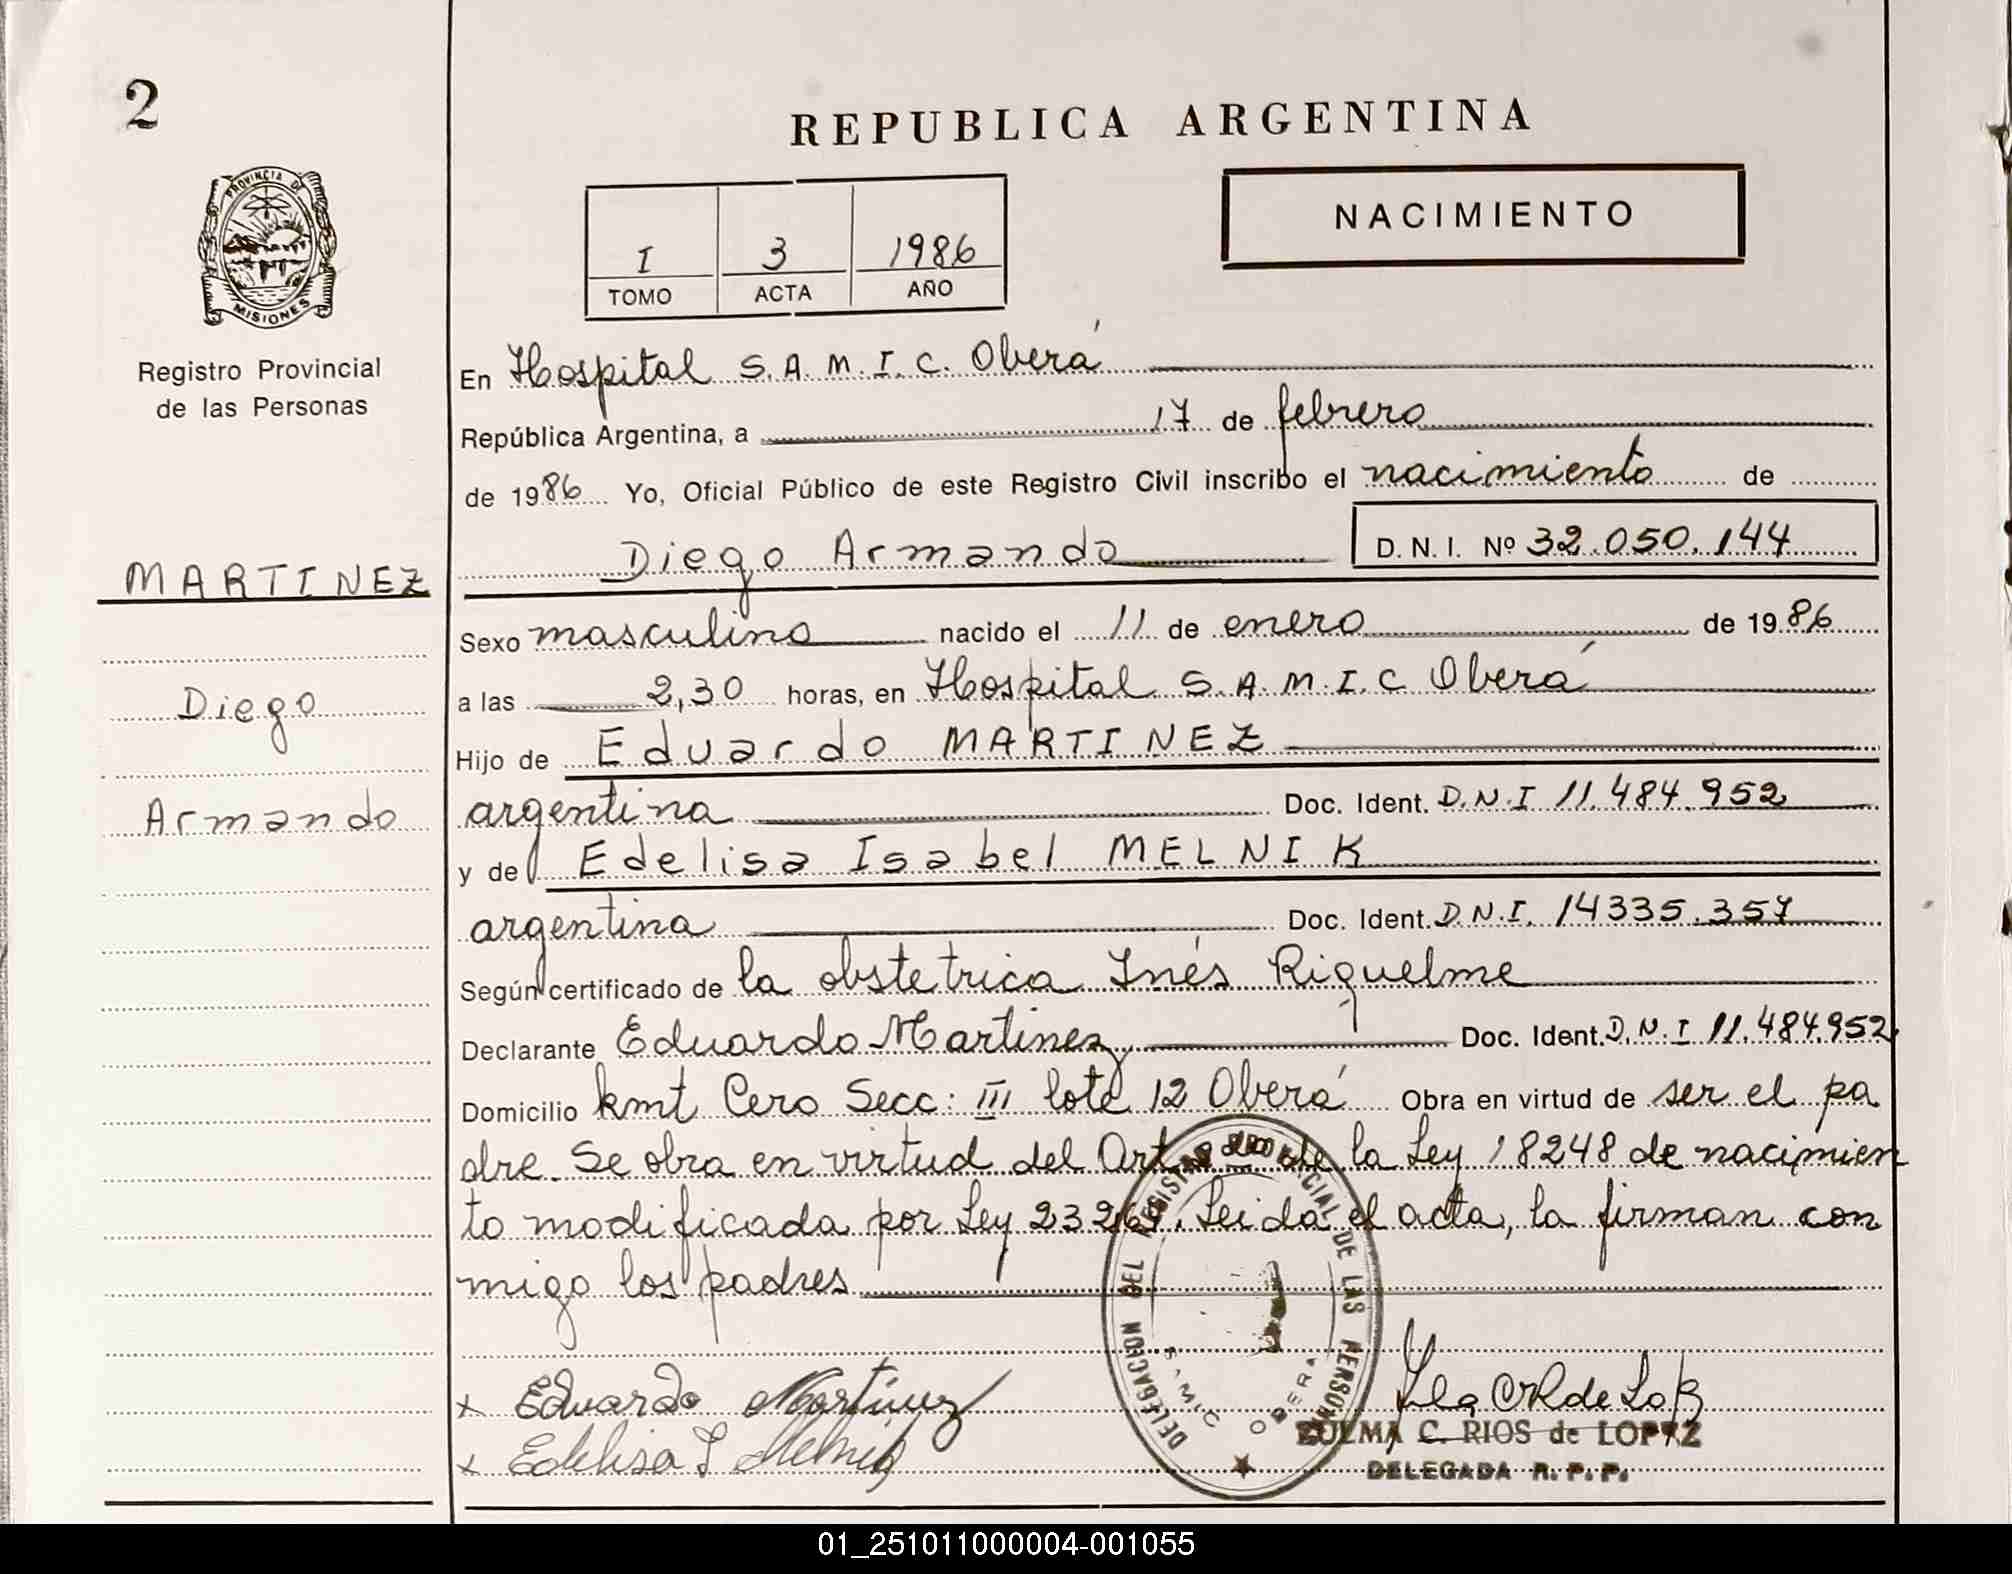 2
REPUBLICA ARGENTINA
PROVINCIA DE
MISIONES
I 3 1986
TOMO ACTA AÑO
NACIMIENTO
Registro Provincial
de las Personas
En Hospital S.A.M.I.C. Oberá
República Argentina, a 17 de febrero
de 1986 Yo, Oficial Público de este Registro Civil inscribo el nacimiento de
Diego Armando D. N. I. Nº 32.050.144
MARTINEZ
Diego
Armando
Sexo masculino nacido el 11 de enero de 1986
a las 2,30 horas, en Hospital S.A.M.I.C Oberá
Hijo de Eduardo MARTINEZ
argentina Doc. Ident. D.N.I 11.484.952
y de Edelisa Isabel MELNIK
argentina Doc. Ident. D.N.I. 14335.357
Según certificado de la obstetrica Inés Riquelme
Declarante Eduardo Martinez Doc. Ident. D.N.I 11.484.952
Domicilio kmt Cero Secc: III lote 12 Oberá Obra en virtud de ser el pa
dre. Se obra en virtud del Art de la Ley 18248 de nacimien
to modificada por Ley Leida el acta, la firman con
migo los padres
x Eduardo Martinez
x Edelisa I Melnik
DELEGACION DEL REGISTRO PROVINCIAL DE LAS PERSONAS
SAMIC OBERA
ZULMA C. RIOS de LOPEZ
DELEGADA R. P. P.
01_251011000004-001055